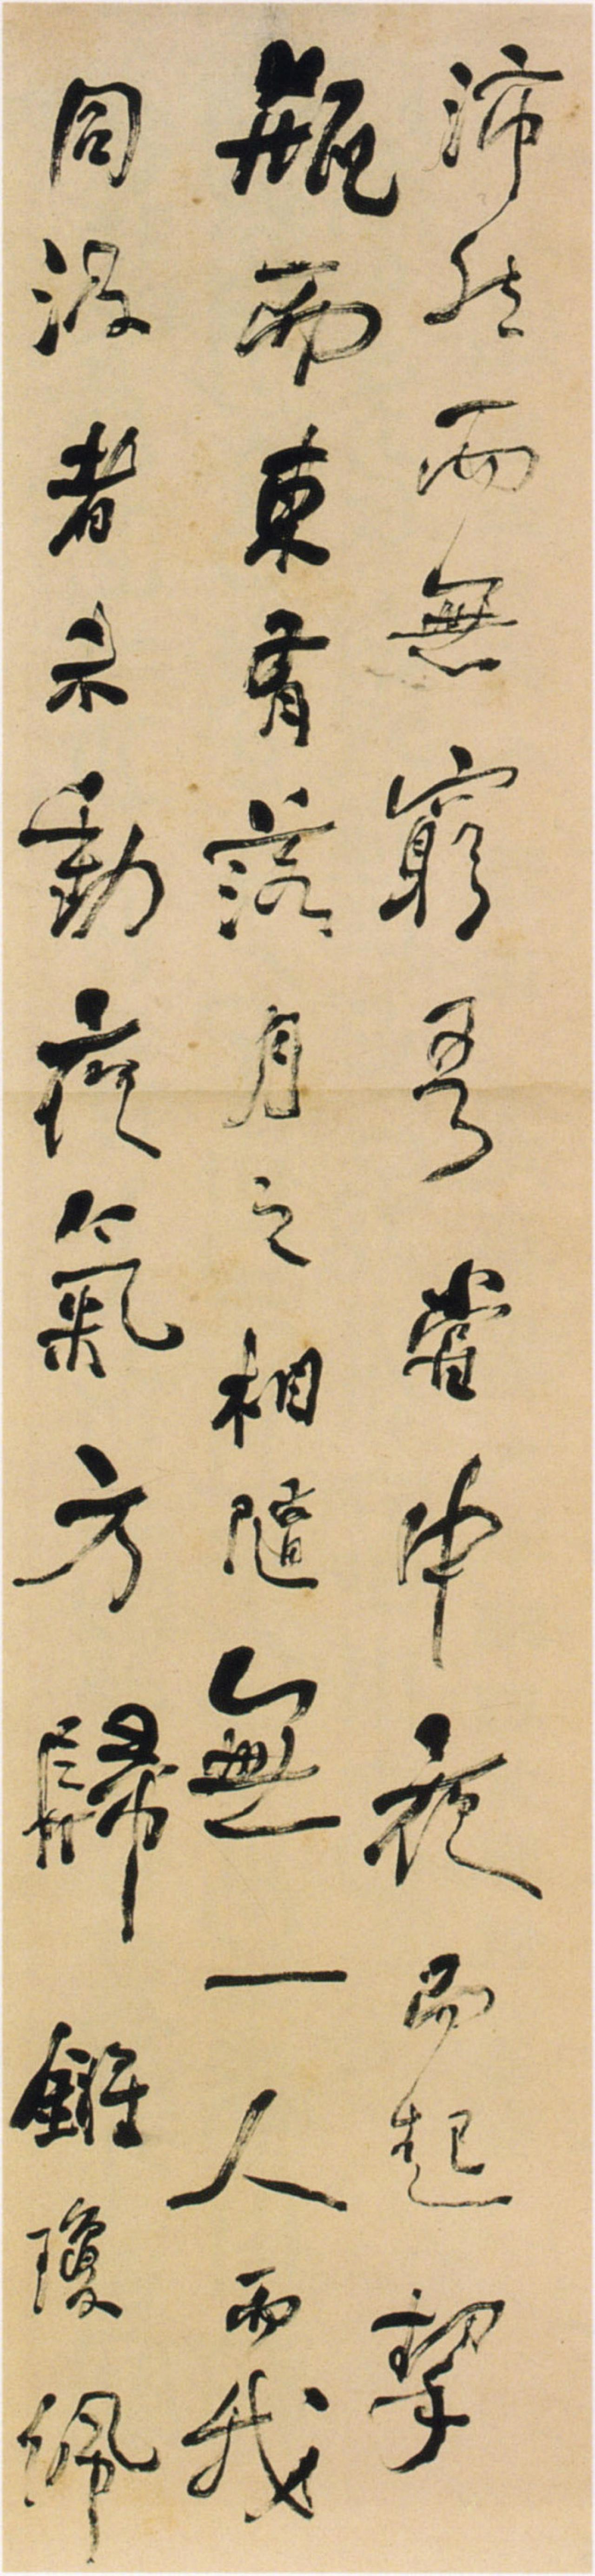 沛然而無窮吾嘗中夜而起挈
瓶而東有落月之相隨無一人而我
同汲者未動夜氣方歸鏘瓊佩